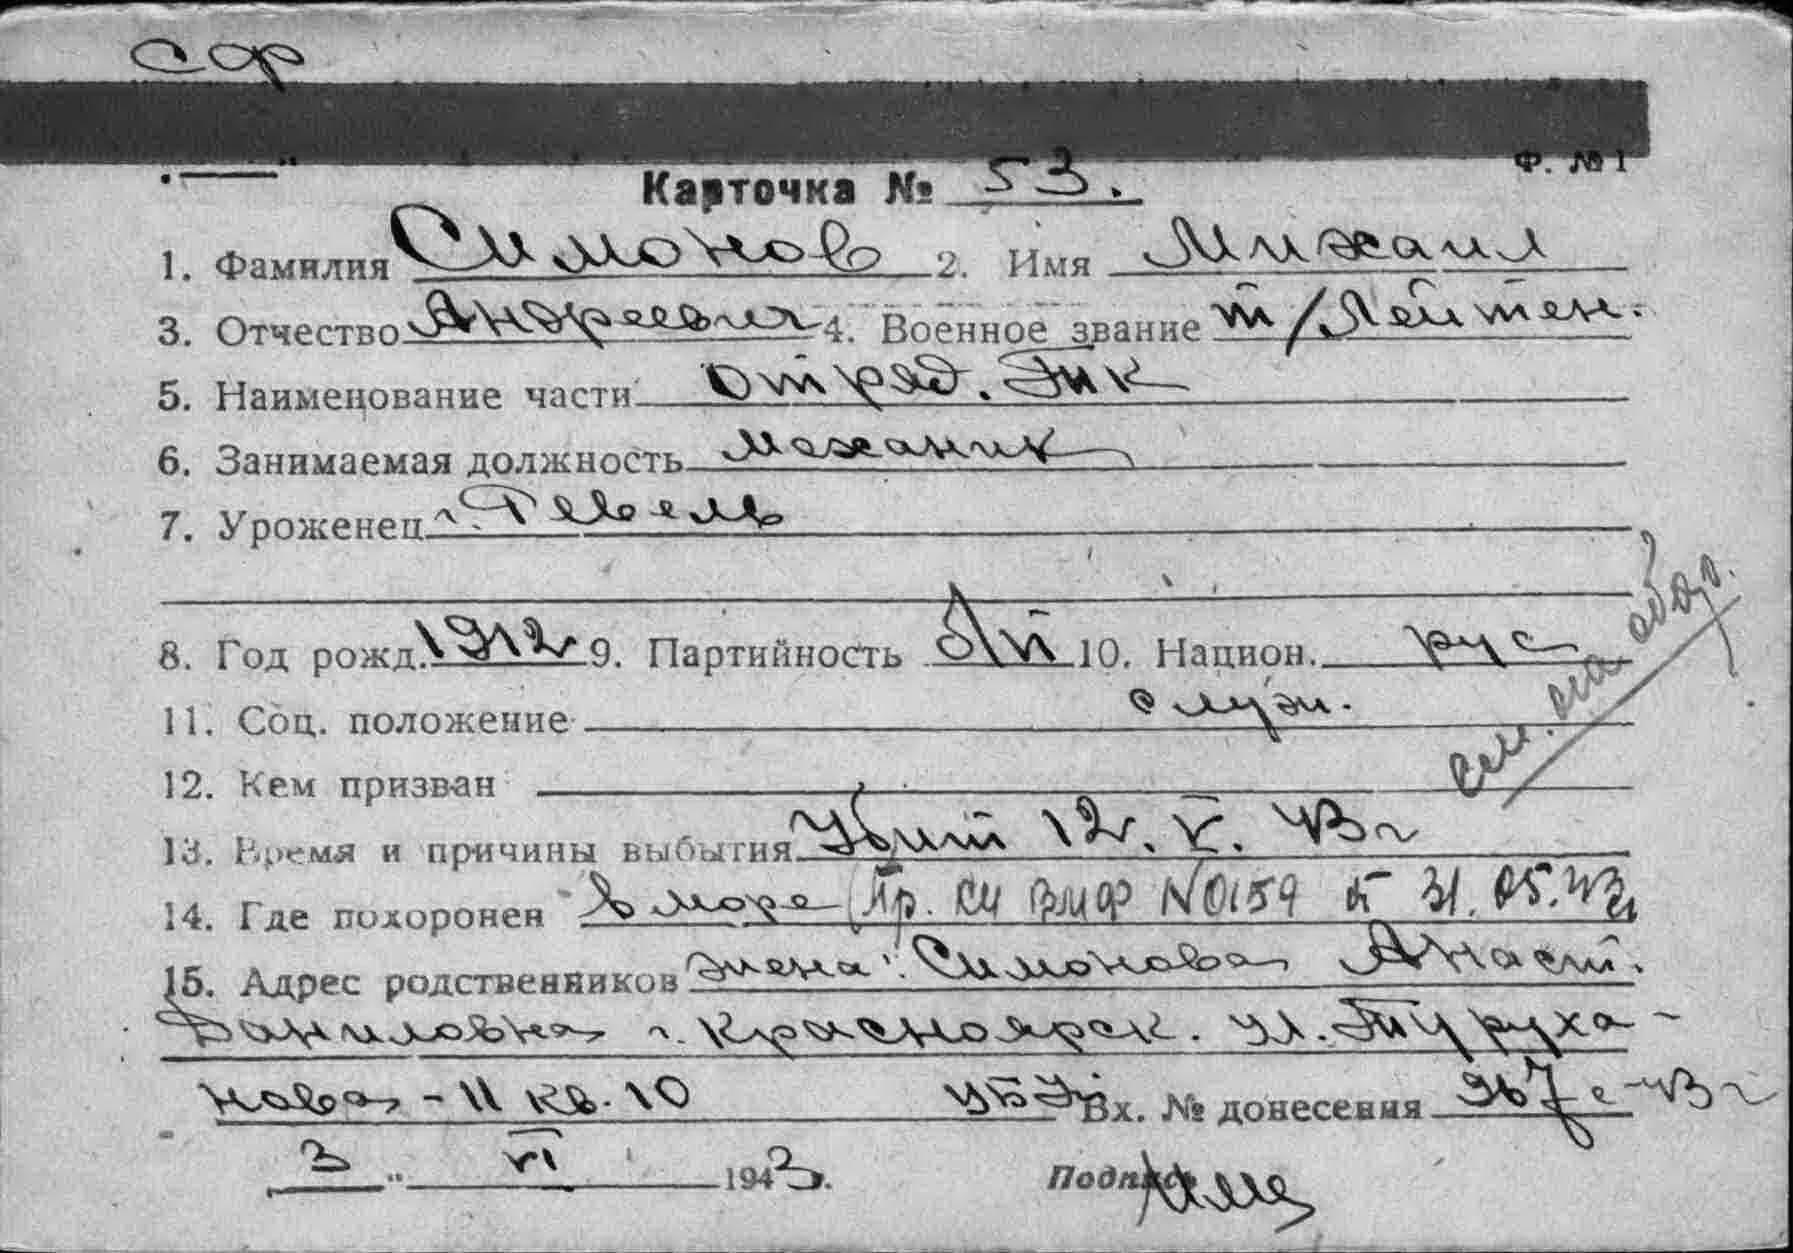 СФ
Ф. № 1
Карточка № 53.
1. Фамилия Симонов 2. Имя Михаил
3. Отчество Андреевич 4. Военное звание т/Лейтен.
5. Наименование части отряд. ТК
6. Занимаемая должность механик
7. Уроженец г. Ревель
8. Год рожд. 1912 9. Партийность б/п 10. Национ. рус
11. Соц. положение служ.
см. на обор.
12. Кем призван
13. Время и причины выбытия Убит 12. V. 43 г
14. Где похоронен в море (Пр. ВМФ № 0159 от 31.05.43г
15. Адрес родственников жена: Симонова Анаст.
Даниловна г. Красноярск. ул. Туруха-
нова - 11 кв. 10 Вх. № донесения 967с-43 г
3 " VI 1943 г.
Подпись